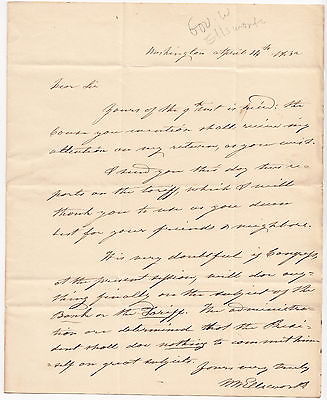 Gov. W
Ellsworth
Washington April 14th 1832
Dear Sir
Yours of the 9th inst is recd: the
cause you mention shall receive my
attention on my return, as you wish.
I send you this day two re-
ports on the tariff, which I will
thank you to use as you deem
best for your friends & neighbors.
It is very doubtful if Congress,
at the present session, will do any-
thing finally on the subject of the
Bank or the Tariff. The administra-
tion are determined that the Presi-
dent shall do nothing to commit him-
self on great subjects.
Yours very truly
W W Ellsworth